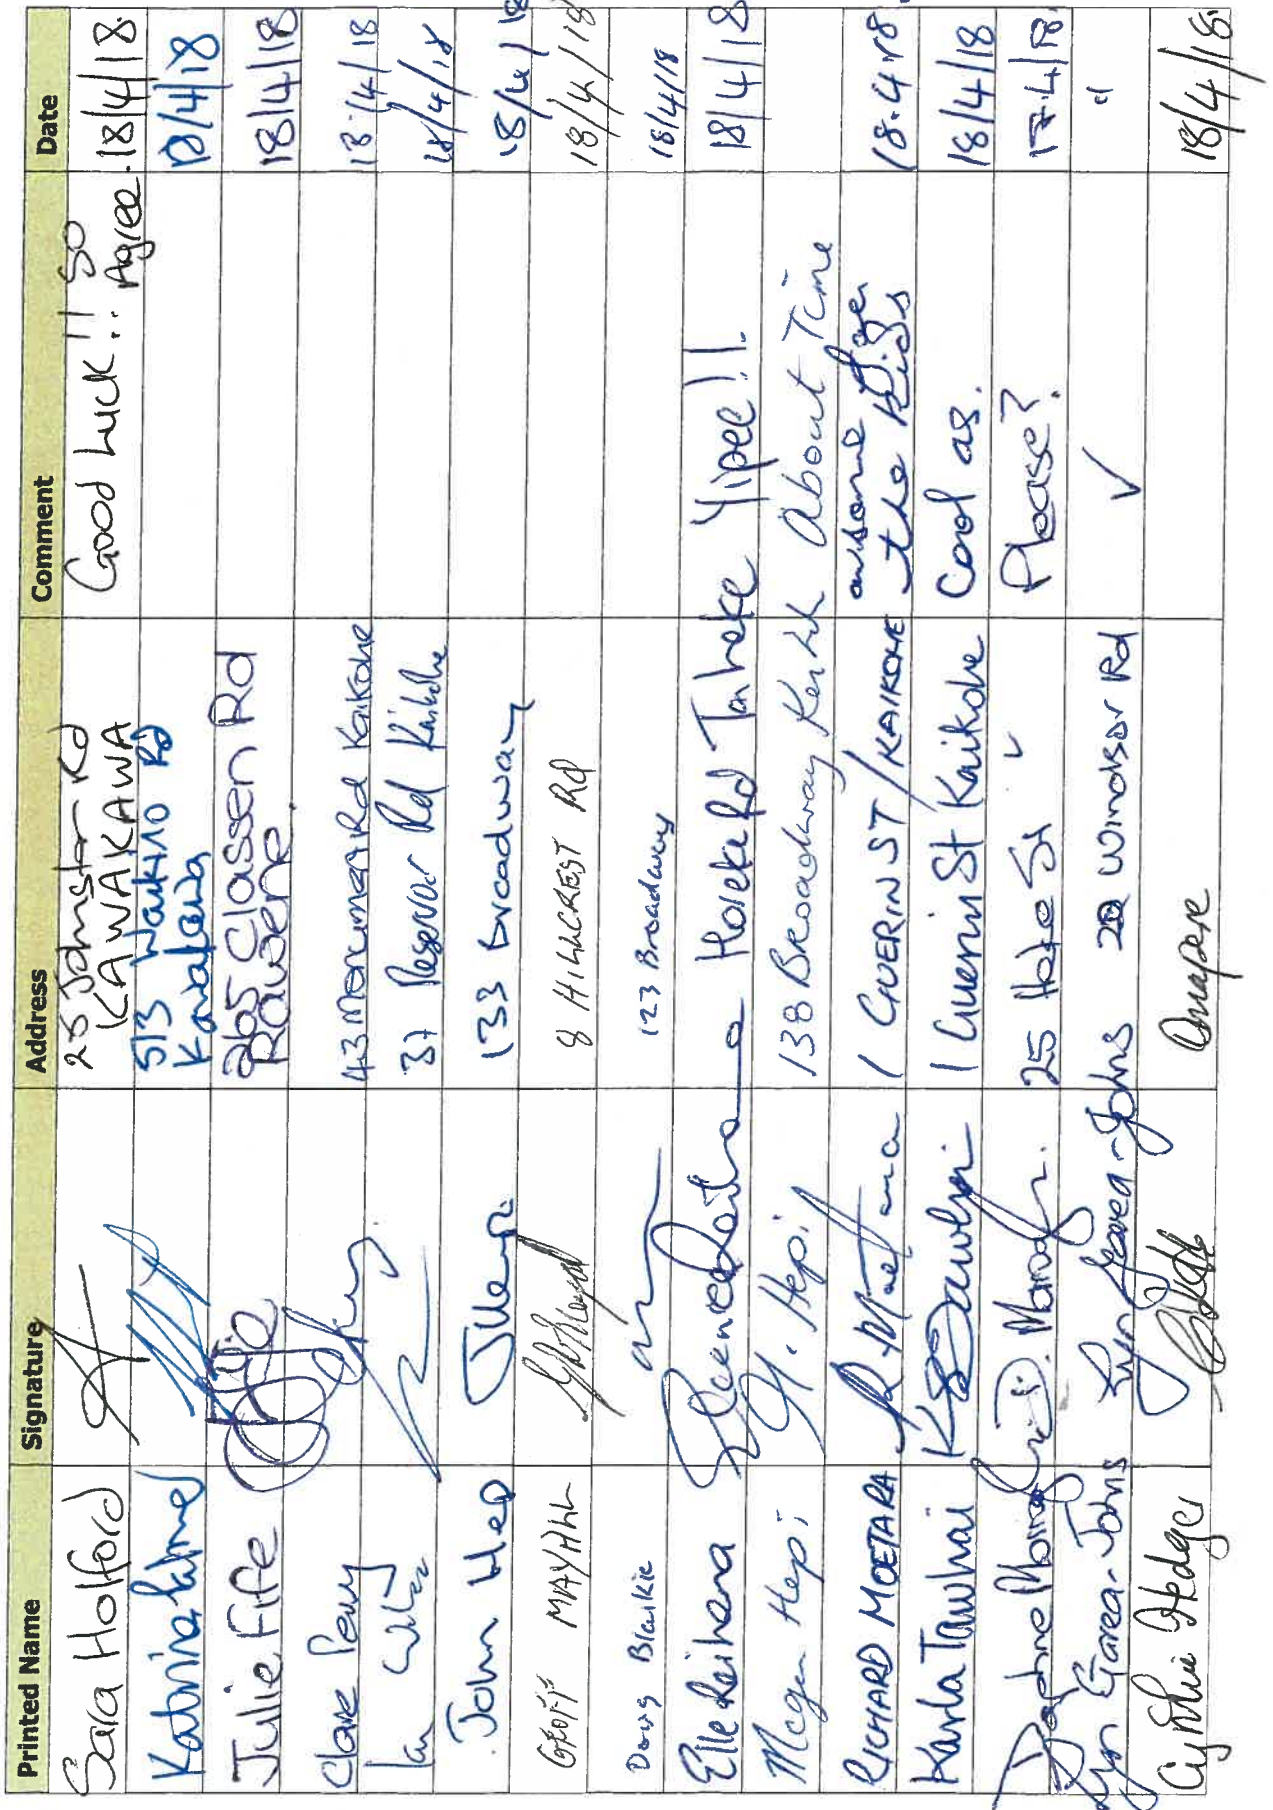 Printed Name Signature Address Comment Date
Sara Holford 25 Johnston Rd Good Luck!! So 18/4/18.
KAWAKAWA Agree.
Katrina Palmer 513 Waikino Rd 18/4/18
Kawakawa
Julie Fife 265 Classen Rd 18/4/18
Rawene.
Clare Perry 43 Monument Rd Kaikohe 18/4/18
Ian 37 Reservor Rd Kaikohe 18/4/18
John 133 broadway 18/4/18
GEOFF MAYHLL 8 HILLCREST Rd 18/4/18
Doug Blaikie 123 Broadway 18/4/18
Elle Reihana Horeke Rd Taheke Yipee!! 18/4/18
Megan Hepi M. Hepi 138 Broadway About Time
RICHARD MOETARA R Moetara 1 GUERIN ST / KAIKOHE awsome for 18.4.18.
the kids
Karla Tawhai K Tawhai 1 Guerin St Kaikohe Cool as. 18/4/18
Daphne 25 Hoke St ✓ Please? 17.4.18.
Lyn Garea-Johns Lyn Garea-Johns 20 Windsor Rd ✓ "
Cynthia Hedges Omapere 18/4/18.